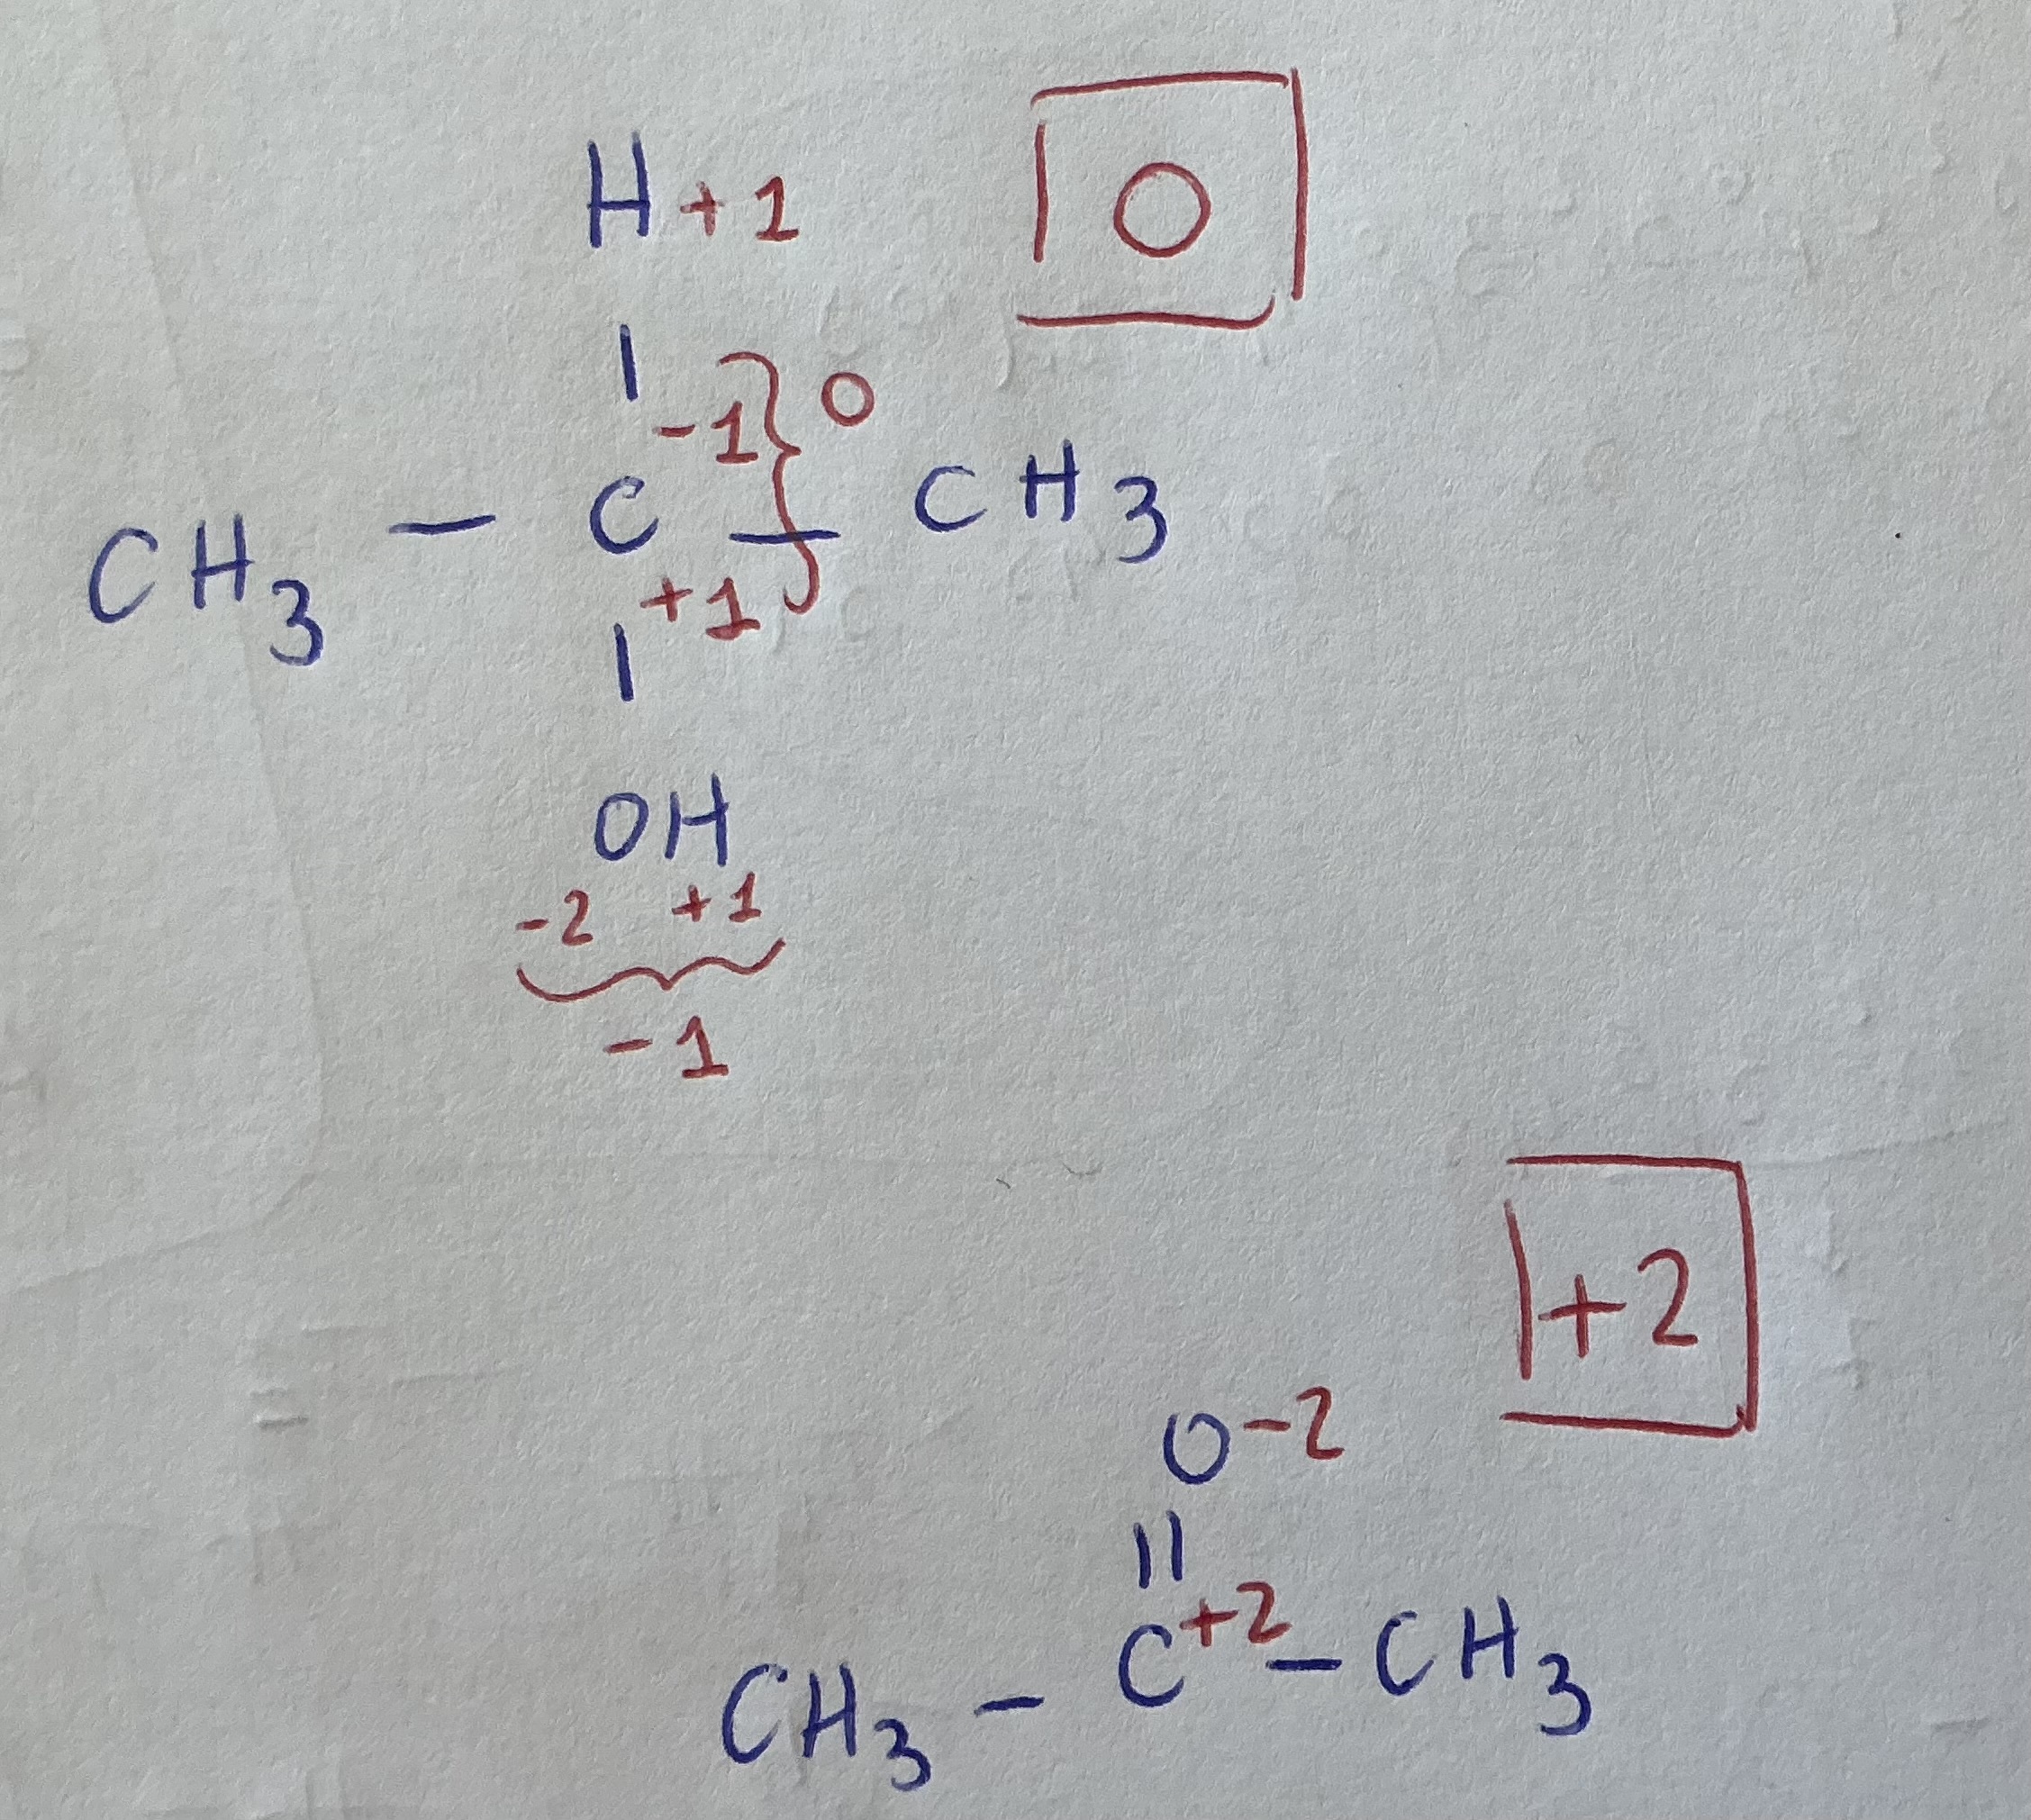 H +1
0
-1 0
CH3 - C - CH3
+1
OH
-2 +1
-1
+2
O -2
||
CH3 - C +2 - CH3